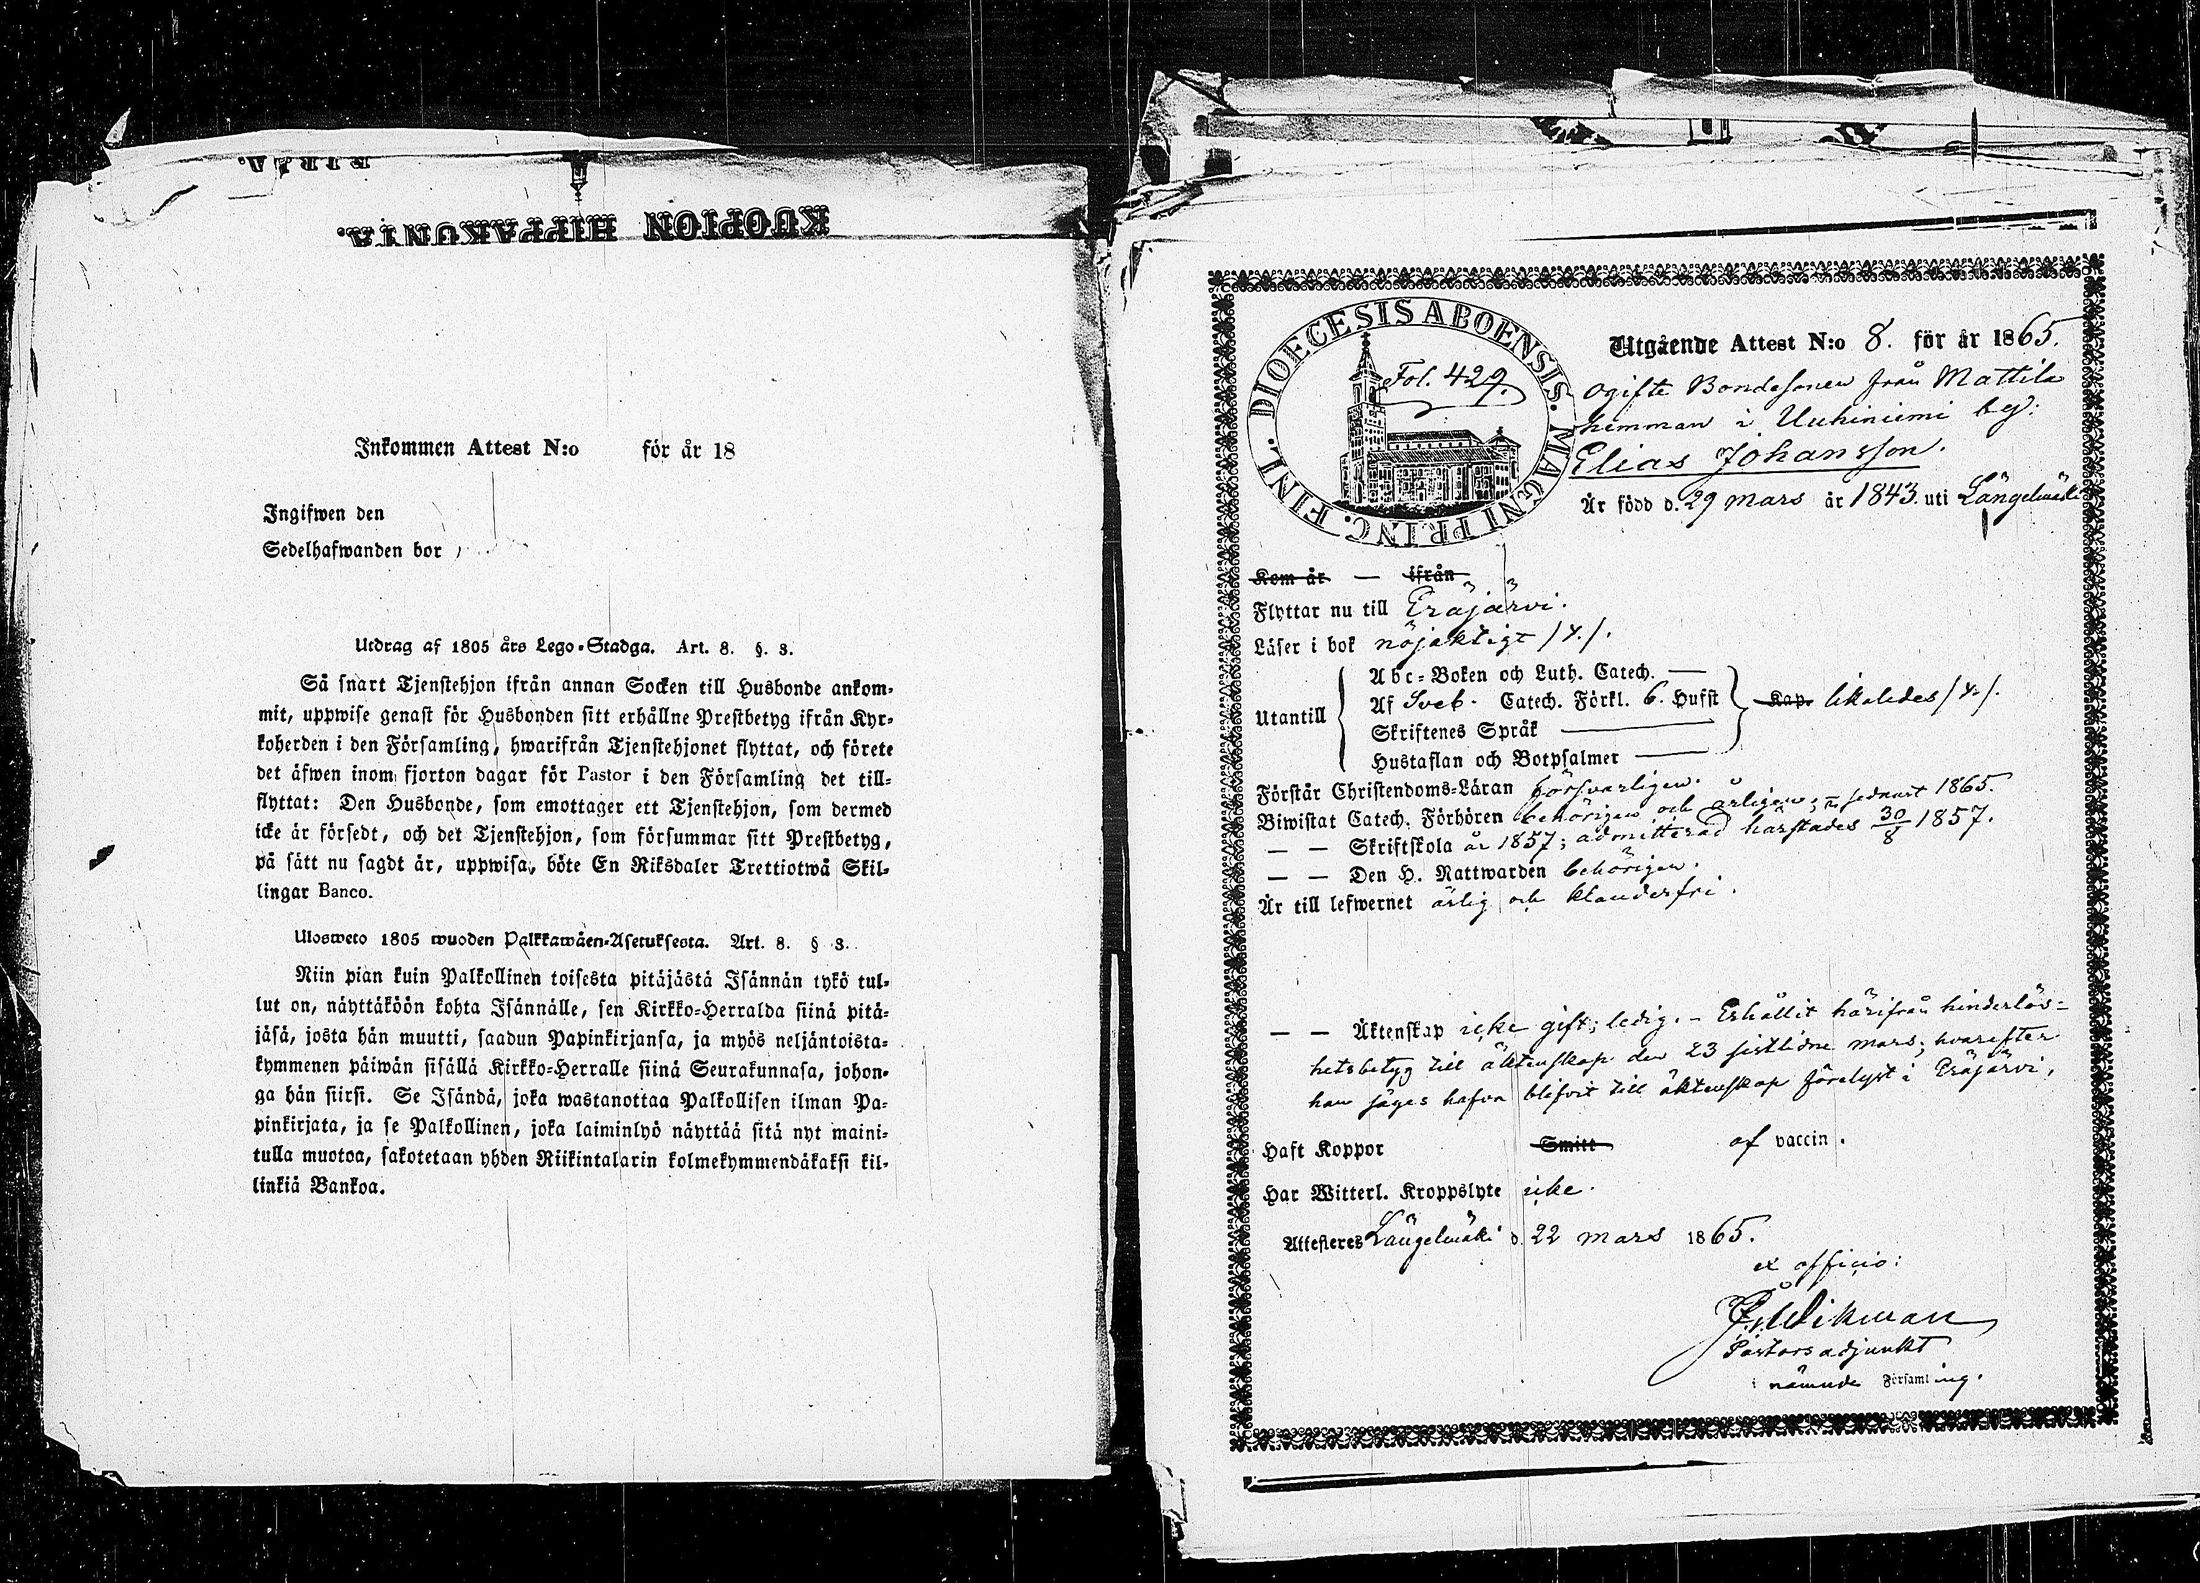 KUOPION HIPPAKUNTA.
Inkommen Attest N:o för år 18
Ingifwen den
Sedelhafwanden bor
Utdrag af 1805 års Lego-Stadga. Art. 8. §. 3.
Så snart Tjenstehjon ifrån annan Socken till Husbonde ankom-
mit, uppwise genast för Husbonden sitt erhållne Prestbetyg ifrån Kyr-
koherden i den Församling, hwarifrån Tjenstehjonet flyttat, och förete
det äfwen inom fjorton dagar för Pastor i den Församling det till-
flyttat: Den Husbonde, som emottager ett Tjenstehjon, som dermed
icke är försedt, och det Tjenstehjon, som försummar sitt Prestbetyg,
på sätt nu sagdt är, uppwisa, böte En Riksdaler Trettiotwå Skil-
lingar Banco.
Ulosweto 1805 wuoden Palkkawäen-Asetuksesta. Art. 8. § 3.
Niin pian kuin Palkollinen toisesta pitäjästä Isännän tykö tul-
lut on, näyttäköön kohta Isännälle, sen Kirkko-Herralda siinä pitä-
jäsä, josta hän muutti, saadun Papinkirjansa, ja myös neljäntoista-
kymmenen päiwän sisällä Kirkko-Herralle siinä Seurakunnasa, johon-
ga hän siirsi. Se Isändä, joka wastanottaa Palkollisen ilman Pa-
pinkirjata, ja se Palkollinen, joka laiminlyö näyttää sitä nyt maini-
tulla muotoa, sakotetaan yhden Riikintalarin kolmekymmendäkaksi kil-
linkiä Bankoa.
DIOECESIS ABOENSIS. MAGNI PRINC. FINL.
Fol. 429.
Utgående Attest N:o 8. för år 1865.
Ogifte Bondesonen från Mattila
hemman i Uuhiniemi by:
Elias Johansson.
Är född d. 29 mars år 1843. uti Längelmäki
Kom år — ifrån
Flyttar nu till Eräjärvi.
Läser i bok nöjaktigt /4./.
Utantill
Abc-Boken och Luth. Catech. —
Af Sveb. Catech. Förkl. 6. Hufst Kap. likaledes /4./.
Skriftenes Språk —
Hustaflan och Botpsalmer —
Förstår Christendoms-Läran försvarligen.
Biwistat Catech. Förhören behörigen och årligen; — sednast 1865.
— — Skriftskola år 1857; admitterad härstädes 30/8 1857.
— — Den H. Nattwarden behörigen.
Är till lefwernet ärlig och klanderfri.
— — Äktenskap icke gift; ledig. – Erhållit härifrån hinderlös-
hetsbetyg till äktenskap den 23 sistlidne mars; hvarefter
han säges hafva blifvit till äktenskap förelyst i Eräjärvi.
Haft Koppor Smitt af vaccin.
Har Witterl. Kroppslyte icke.
Attesteres Längelmäki d. 22 mars 1865.
ex officio:
Wikman
Pastorsadjunkt
i nämnde Församling.